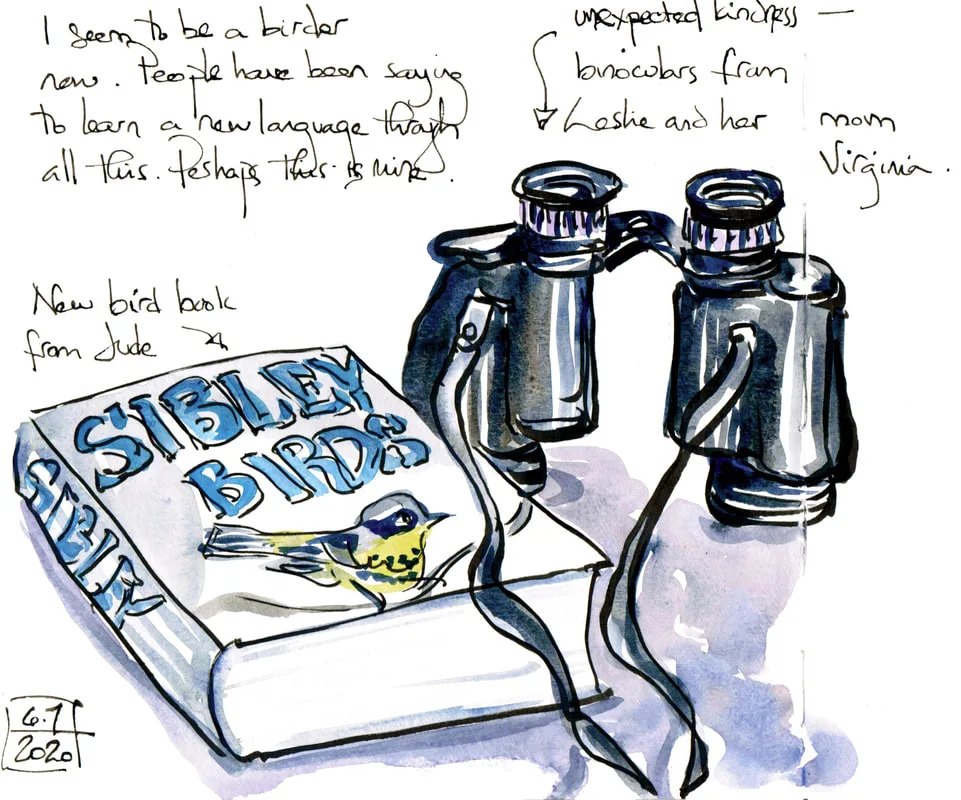 I seem to be a birder
now. People have been saying
to learn a new language through
all this. Perhaps this is mine.
unexpected kindness —
binoculars from
Leslie and her mom
Virginia.
New bird book
from Jude
SIBLEY
BIRDS
SIBLEY
6.7
2020